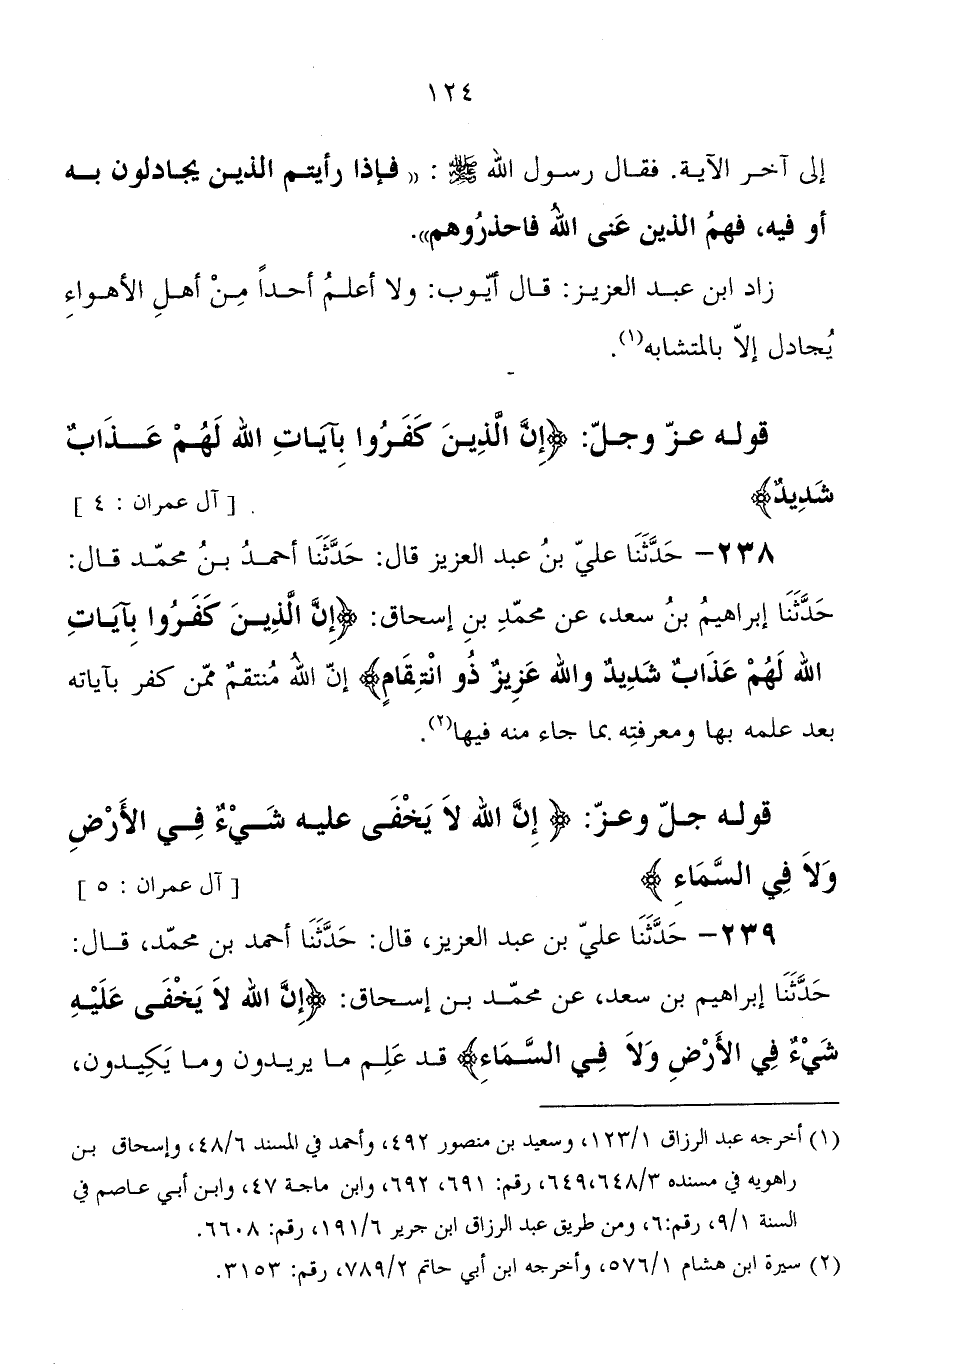 ١٢٤
إلى آخر الآية. فقال رسول الله ﷺ : «فإذا رأيتم الذين يجادلون به
أو فيه، فهمُ الذين عَنى اللهُ فاحذرُوهم».
زاد ابن عبد العزيز: قال أيّوب: ولا أعلمُ أحداً مِنْ أهلِ الأهواءِ
يُجادل إلاّ بالمتشابه(١).
قوله عزّ وجلّ: ﴿إِنَّ الَّذِينَ كَفَرُوا بِآيَاتِ الله لَهُمْ عَذَابٌ
شَدِيدٌ﴾ [ آل عمران : ٤ ]
٢٣٨– حَدَّثَنَا عليّ بنُ عبد العزيز قال: حَدَّثَنَا أحمدُ بنُ محمّد قال:
حَدَّثَنَا إبراهيمُ بنُ سعد، عن محمّدِ بنِ إسحاق: ﴿إِنَّ الَّذِينَ كَفَرُوا بِآيَاتِ
الله لَهُمْ عَذَابٌ شَدِيدٌ والله عَزِيزٌ ذُو انْتِقَامٍ﴾ إنّ اللهَ مُنتقمٌ ممّن كفر بآياته
بعد علمه بها ومعرفتِه بما جاء منه فيها(٢).
قوله جلّ وعزّ: ﴿ إِنَّ الله لاَ يَخْفَى عليه شَيْءٌ فِي الأَرْضِ
وَلاَ فِي السَّمَاءِ ﴾ [ آل عمران : ٥ ]
٢٣٩– حَدَّثَنَا عليّ بن عبد العزيز، قال: حَدَّثَنَا أحمد بن محمّد، قال:
حَدَّثَنَا إبراهيم بن سعد، عن محمّد بن إسحاق: ﴿إِنَّ الله لاَ يَخْفَى عَلَيْهِ
شَيْءٌ فِي الأَرْضِ وَلاَ فِي السَّمَاءِ﴾ قد عَلِم ما يريدون وما يَكِيدون،
(١) أخرجه عبد الرزاق ١٢٣/١، وسعيد بن منصور ٤٩٢، وأحمد في المسند ٤٨/٦، وإسحاق بن
راهويه في مسنده ٦٤٩،٦٤٨/٣، رقم: ٦٩١، ٦٩٢، وابن ماجة ٤٧، وابن أبي عاصم في
السنة ٩/١، رقم:٦، ومن طريق عبد الرزاق ابن جرير ١٩١/٦، رقم: ٦٦٠٨.
(٢) سيرة ابن هشام ٥٧٦/١، وأخرجه ابن أبي حاتم ٧٨٩/٢، رقم: ٣١٥٣.